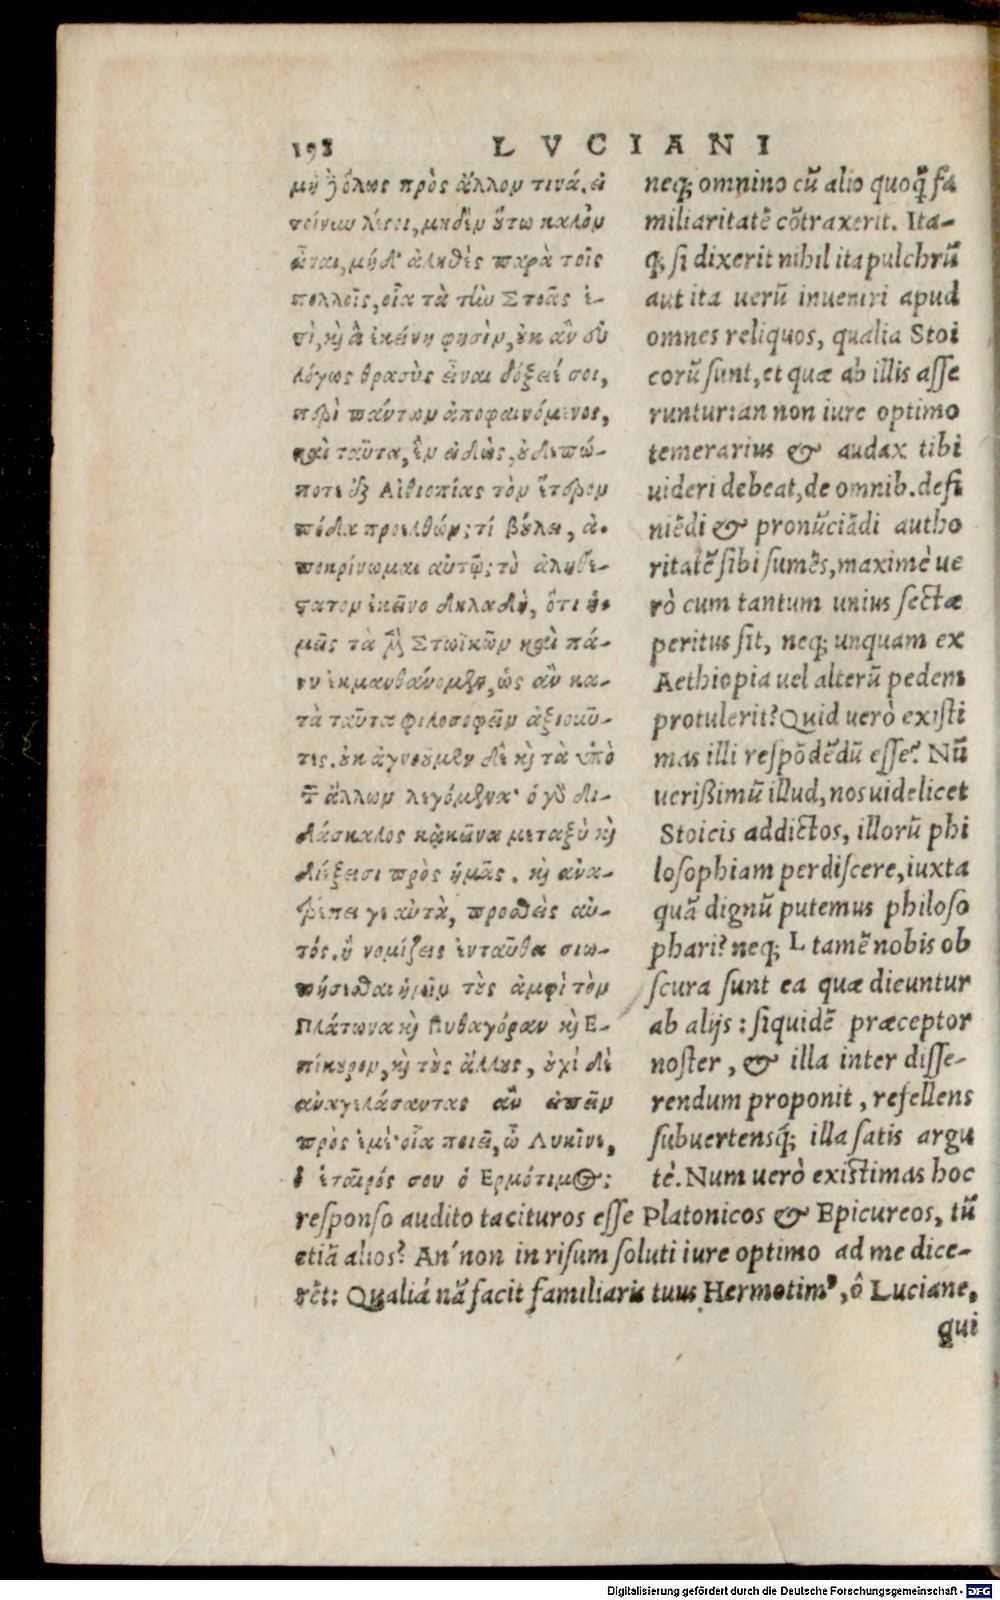 198 LVCIANI
μηδ' ὅλως πρὸς ἄλλον τινά. εἰ
τοίνυν λέγοι, μηδὲν οὕτω καλὸν
εἶναι, μήδ' ἀληθὲς παρὰ τοῖς
πολλοῖς, οἷα τὰ τῆς Στοᾶς ἐ-
στὶ, κỳ ἃ ἐκείνη φησὶν, οὐκ ἂν εὐ
λόγως θρασὺς εἶναι δόξειέ σοι,
περὶ πάντων ἀποφαινόμενος,
καὶ ταῦτα, ἓν εἰδὼς, οὐδεπώ-
ποτε ἐξ Αἰθιοπίας τὸν ἕτερον
πόδα προελθών; τί βούλει, ἀ-
ποκρίνωμαι αὐτῷ; τὸ ἀληθέ-
στατον ἐκεῖνο δηλαδὴ, ὅτι ἡ-
μεῖς τὰ μὲν Στωϊκῶν καὶ πά-
νυ ἐκμανθάνομεν, ὡς ἂν κα-
τὰ ταῦτα φιλοσοφεῖν ἀξιοῦν-
τες. οὐκ ἀγνοοῦμεν δὲ κỳ τὰ ὑπὸ
τῶν ἄλλων λεγόμενα· ὁ γὰρ δι-
δάσκαλος κἀκεῖνα μεταξὺ
διέξεισι πρὸς ἡμᾶς. κỳ ἀνα-
τρέπει γε αὐτὰ, προσθεὶς αὐ-
τός. ἢ νομίζεις ἐνταῦθα σιω-
πήσεσθαι ἡμῖν τοὺς ἀμφὶ τὸν
Πλάτωνα κỳ Πυθαγόραν κỳ Ε-
πίκουρον, κỳ τοὺς ἄλλους, οὐχὶ δὲ
ἀναγελάσαντας ἂν εἰπεῖν
πρὸς ἐμέ· οἷα ποιεῖ, ὦ Λυκῖνε,
ὁ ἑταῖρός σου ὁ Ερμότιμος;
neq; omnino cū alio quoq̄ fa
miliaritatē cōtraxerit. Ita-
q; si dixerit nihil ita pulchrū
aut ita uerū inueniri apud
omnes reliquos, qualia Stoi
corū sunt, et quæ ab illis asse
runtur: an non iure optimo
temerarius & audax tibi
uideri debeat, de omnib. defi
niēdi & pronūciādi autho
ritatē sibi sumēs, maximè ue
rò cum tantum unius sectæ
peritus sit, neq; unquam ex
Aethiopia uel alterū pedem
protulerit? Quid uerò existi
mas illi respōdēdū esse? Nū
uerißimū illud, nos uidelicet
Stoicis addictos, illorū phi
losophiam perdiscere, iuxta
quā dignū putemus philoso
phari? neq; tamē nobis ob
scura sunt ea quæ dicuntur
ab alijs: siquidē præceptor
noster, & illa inter disse-
rendum proponit, refellens
subuertensq́; illa satis argu
tè. Num uerò existimas hoc
responso audito tacituros esse Platonicos & Epicureos, tū
etiā alios? An´ non in risum soluti iure optimo ad me dice-
rēt: Qualiá nā facit familiaris tuus Hermotim', ô Luciane,
qui
Digitalisierung gefördert durch die Deutsche Forschungsgemeinschaft - DFG